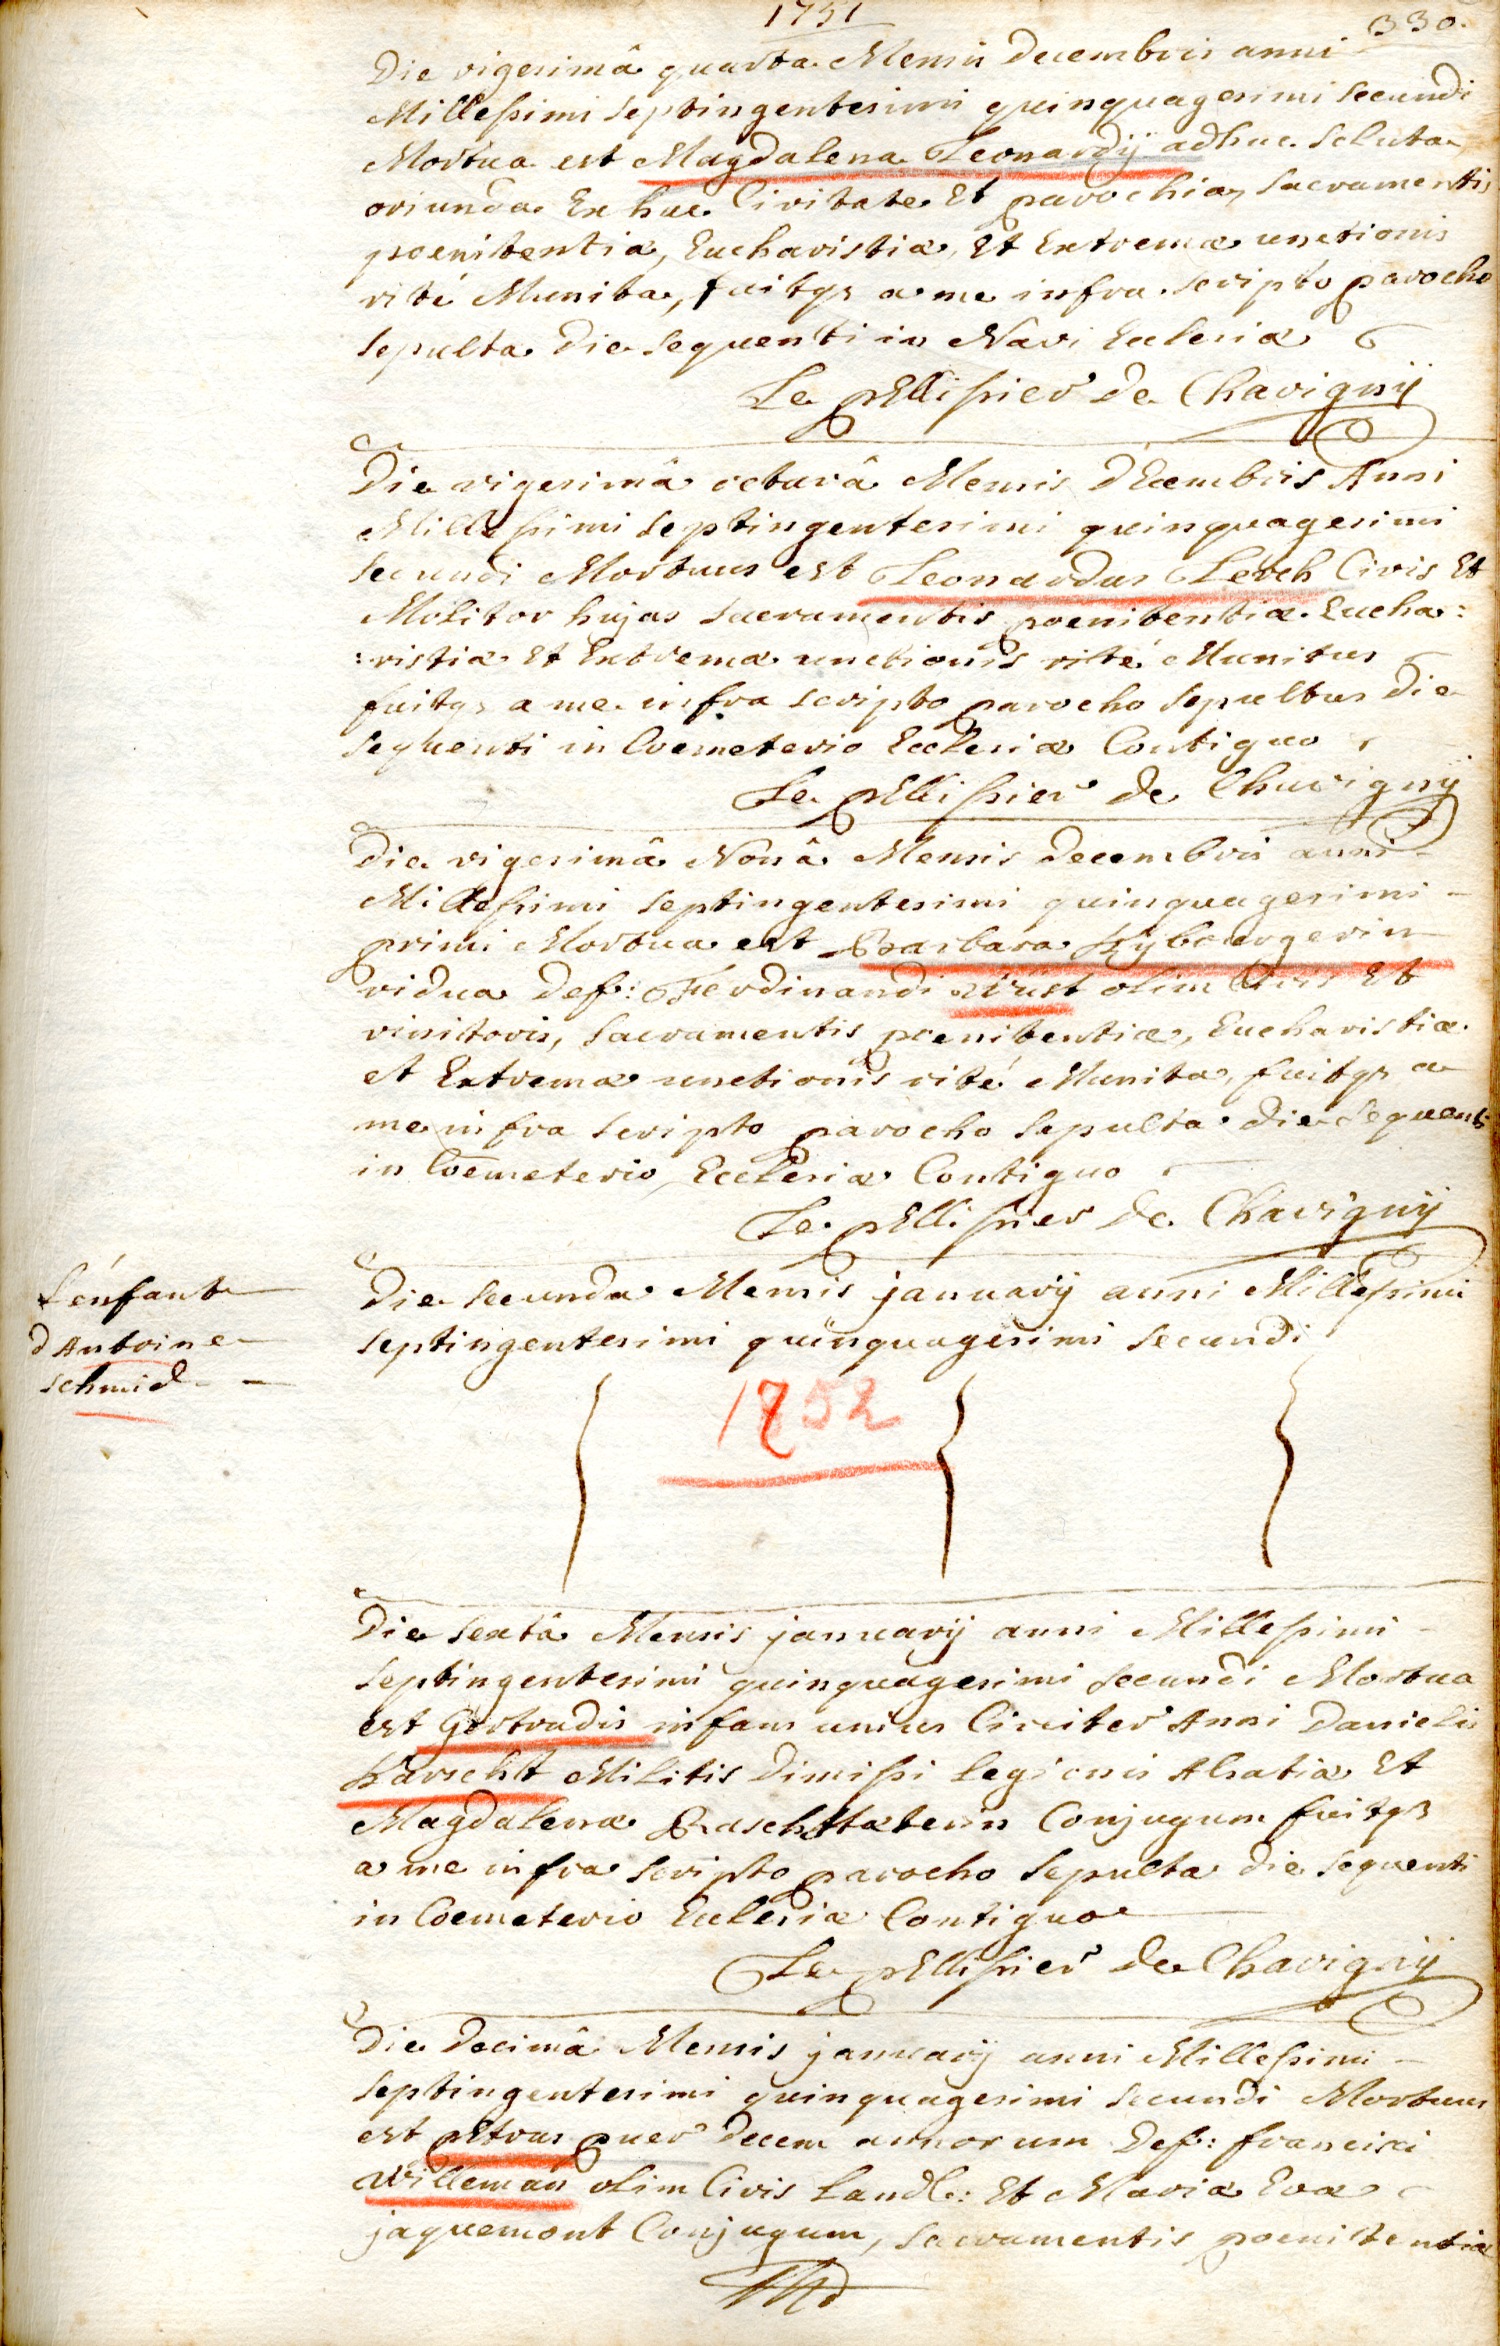 1751
330.
Die vigesimâ quarta Mensis Decembris anni
Millessimi Septingentesimi quinquagesimi secundi
Mortua est Magdalena Leonardÿ adhuc soluta
oriunda Ex hac Civitate Et parochia, sacramentis
poenitentiæ, Eucharistiæ, Et Extremæ unctionis
rité Munita, fuitqz a me infra scripto parocho
sepulta die sequenti in Navi Ecclesiæ
Le pEllissier de Chavignÿ
Die vigesimâ octavâ Mensis dEcembris Anni
Millessimi septingentesimi quinquagesimi
secundi Mortuus est Leonardus Lerch Civis Et
Molitor hujas sacramentis poenitentiæ Eucha:
:ristiæ Et Extremæ unctionis rité Munitus
fuitqz a me infra scripto parocho sepultus die
sequenti in Coemeterio Ecclesiæ Contiguo
Le pEllissier de Chavignÿ
Die vigesimâ Nonâ Mensis Decembris anni
Millessimi septingentesimi quinquagesimi
primi Mortua est Barbara Kÿbourgerin
vidua def: Ferdinandi Wüst olim Civis Et
vinitoris, sacramentis poenitentiæ, Eucharistiæ
et Extremæ unctionis rité Munita, fuitqz a
me infra scripto parocho sepulta die sequenti
in Coemeterio Ecclesiæ Contiguo
Le pEllissier de Chavignÿ
L'énfant
d'Antoine
schmid
Die secunda Mensis januarÿ anni Millessimi
septingentesimi quinquagesimi secundi
1752
Die sextâ Mensis januarÿ anni Millessimi
septingentesimi quinquagesimi secundi Mortua
est Gertrudis infans unius Circiter Anni Danielis
Karscht Militis dimissi legionis Alsatiæ Et
Magdalenæ Conjugum fuitqz
a me infra scripto parocho sepulta die sequenti
in Coemeterio Ecclesiæ Contiguo
Le pEllissier de Chavignÿ
Die Decimâ Mensis januarÿ anni Millessimi
septingentesimi quinquagesimi secundi Mortuus
est pEtrus puer decem annorum Def: francisci
Willeman olim Civis Landl: Et Mariæ Evæ
jaquemont Conjugum, sacramentis poenitentiæ